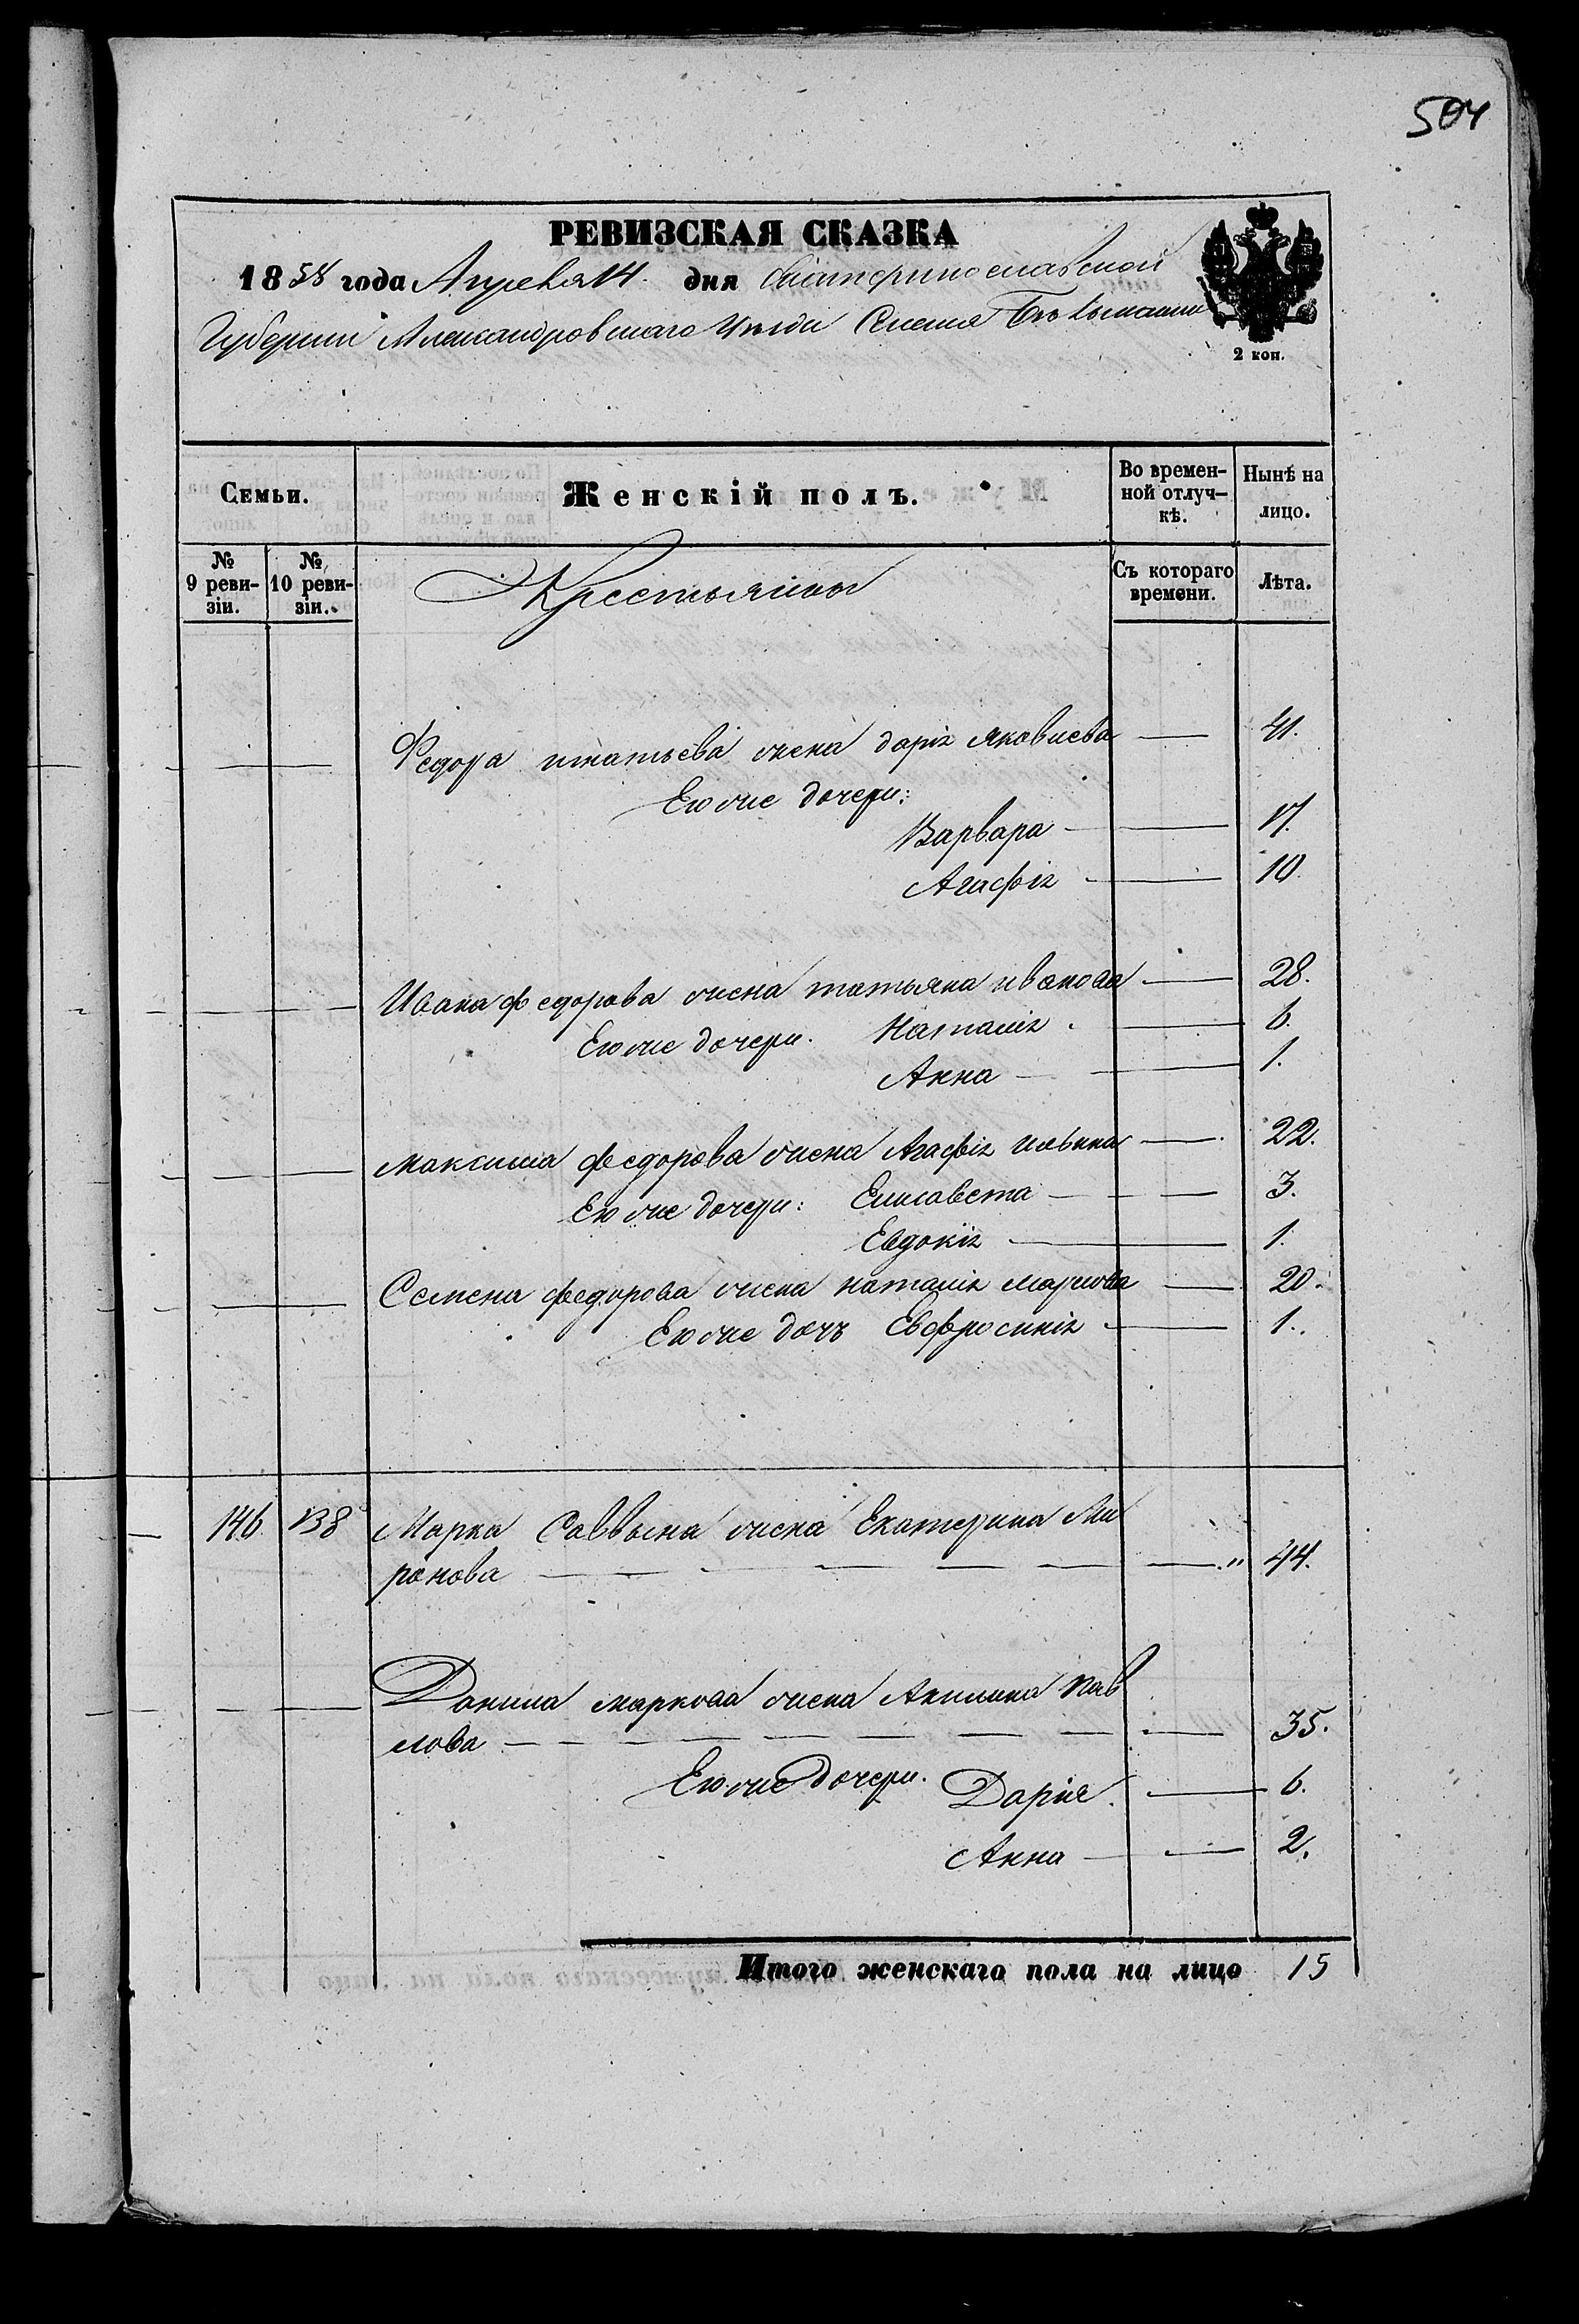 504
РЕВИЗСКАЯ СКАЗКА
1858 года Апреля 14. дня Екатеринославской
Губернии Александровскаго Уезда Селения
2 коп.
Семьи. Женскій полъ. Во времен- Нынѣ на
ной отлуч- лицо.
кѣ.
№ № Крестьяины Съ котораго Лѣта.
9 реви- 10 реви- времени.
зіи. зіи.
Федора игнатьева жена даріа яковлева — 41.
Ею же дочери:
Варвара — 17.
Агафіа — 10
Ивана федорова жена татьяна иванова — 28.
Ею же дочери. Наталіа — 6.
Анна — 1.
максима федорова жена Агафіа ильина — 22.
Ею же дочери: Елисавета — 3.
Евдокіа — 1.
Семена федорова жена наталіа маркова — 20.
Ею же дочь Евфросиніа — 1.
146. 138 Марка Саввына жена Екатерина Ми
ронова — " 44.
Данила маркова жена Акилина пав
лова — 35.
Ею же дочери. Дарія. — 6.
Анна — 2.
Итого женскаго пола на лицо 15